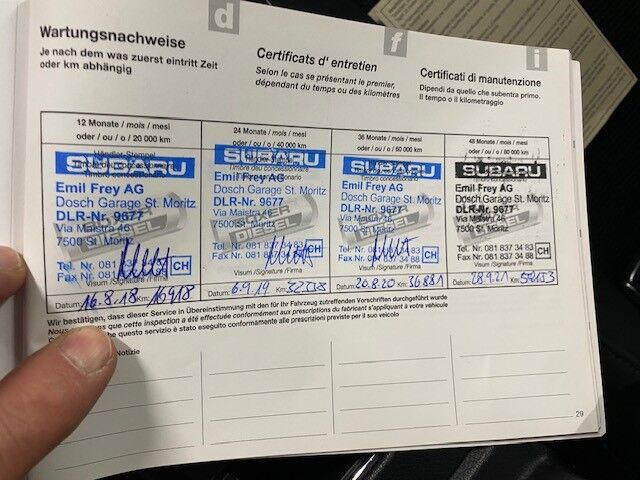 d
Wartungsnachweise
Je nach dem was zuerst eintritt Zeit
oder km abhängig
f
Certificats d' entretien
Selon le cas se présentant le premier,
dépendant du temps ou des kilomètres
i
Certificati di manutenzione
Dipendi da quello che subentra primo.
Il tempo o il kilometraggio
12 Monate / mois / mesi
oder / ou / o / 20 000 km
SUBARU
Emil Frey AG
Dosch Garage St. Moritz
DLR-Nr. 9677
Via Maistra 46
7500 St. Moritz
Tel. Nr. 081 837
Fax Nr. 081
CH
Visum /Signature /Firma
Datum: 16.8.18 Km: 16918
24 Monate / mois / mesi
oder / ou / o / 40 000 km
SUBARU
Emil Frey AG
Dosch Garage St. Moritz
DLR-Nr. 9677
Via Maistra 46
7500 St. Moritz
Tel. Nr. 081 837 34 83
Fax Nr. 081
CH
Visum /Signature /Firma
Datum: 6.9.19 Km:
36 Monate / mois / mesi
oder / ou / o / 60 000 km
SUBARU
Emil Frey AG
Dosch Garage St. Moritz
DLR-Nr. 9677
Via Maistra 46
7500 St. Moritz
Tel. Nr. 081 837 34 83
Fax Nr. 081 34 88
CH
Visum /Signature /Firma
Datum: 20.8.20 Km: 36881
48 Monate / mois / mesi
oder / ou / o / 80 000 km
SUBARU
Emil Frey AG
Dosch Garage St. Moritz
DLR-Nr. 9677
Via Maistra 46
7500 St. Moritz
Tel. Nr. 081 837 34 83
Fax Nr. 081 837 34 88
CH
Visum /Signature /Firma
Datum: 28.9.21 Km:
Wir bestätigen, dass dieser Service in Übereinstimmung mit den für Ihr Fahrzeug zutreffenden Vorschriften durchgeführt wurde
que cette inspection a été effectuée conformément aux prescriptions du fabricant s'appliquant à votre véhicule
che questo servizio è stato eseguito conformamente alle prescrizioni previste per il suo veicolo
Notizie
29